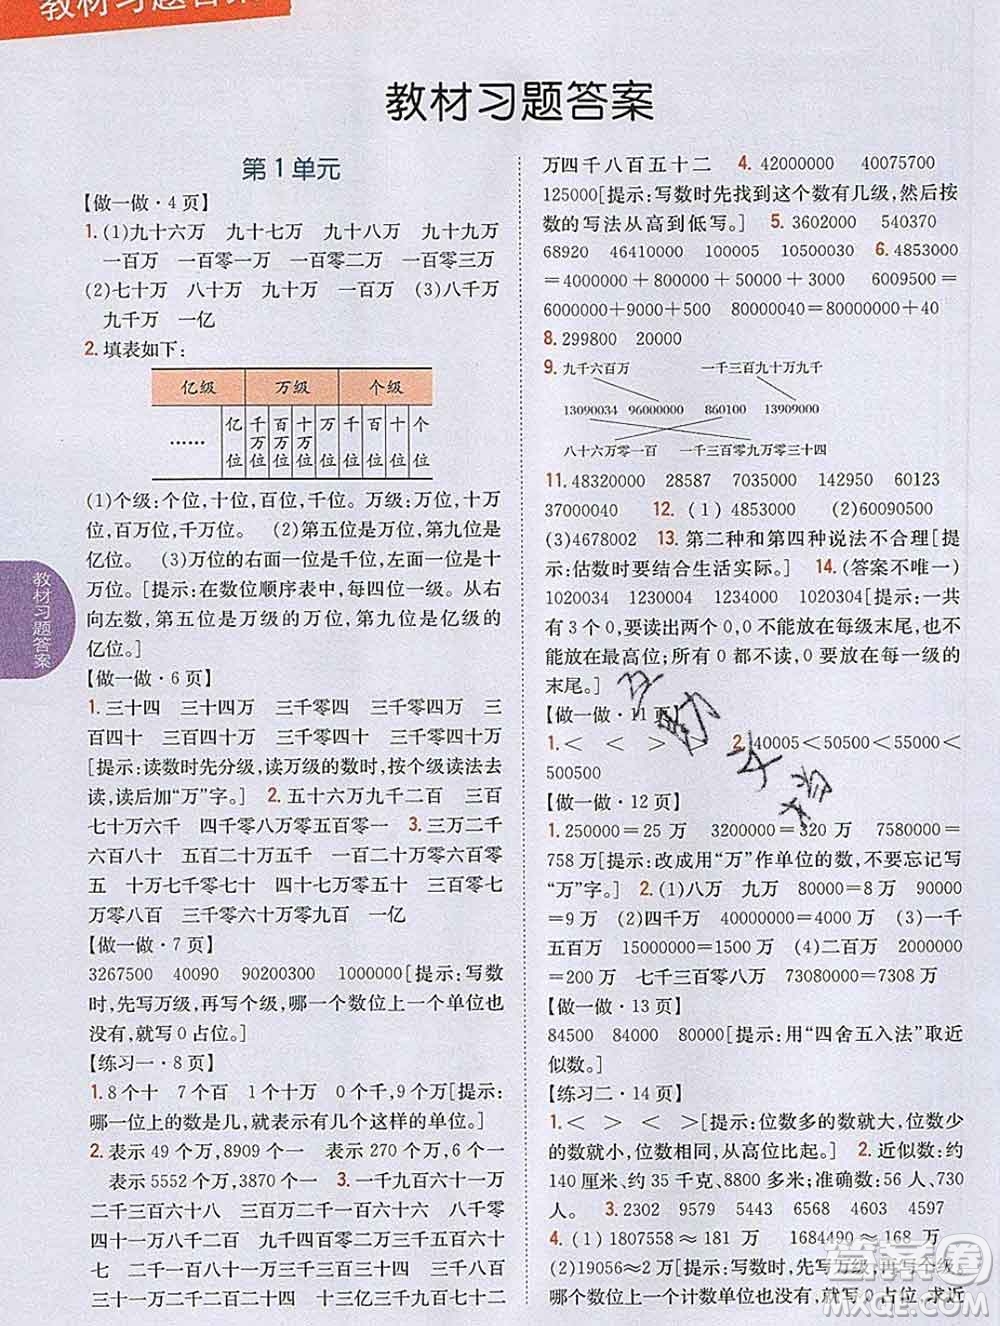 教材习题答案
教材习题答案
第1单元
【做一做·4页】
1.(1)九十六万 九十七万 九十八万 九十九万
一百万 一百零一万 一百零二万 一百零三万
(2)七十万 八十万 九十万 一百万 (3)八千万
九千万 一亿
2. 填表如下:
亿级 万级 个级
…… 亿位 千万位 百万位 十万位 万位 千位 百位 十位 个位
(1)个级:个位,十位,百位,千位。万级:万位,十万
位,百万位,千万位。 (2)第五位是万位,第九位是
亿位。 (3)万位的右面一位是千位,左面一位是十
万位。[提示:在数位顺序表中,每四位一级。从右
向左数,第五位是万级的万位,第九位是亿级的
亿位。]
【做一做·6页】
1.三十四 三十四万 三千零四 三千零四万 三
百四十 三百四十万 三千四百 三千四百万
[提示:读数时先分级,读万级的数时,按个级读法去
读,读后加“万”字。] 2.五十六万九千二百 三百
七十万六千 四千零八万零五百零一 3.三万二千
六百八十 五百二十万七千 四千六百万零五百零
五 十万七千零七十 四千零七万二千 一千九百
万零八百 三千零六十万零九百 一亿
【做一做·7页】
3267500 40090 90200300 1000000[提示:写数
时,先写万级,再写个级,哪一个数位上一个单位也
没有,就写0占位。]
【练习一·8页】
1.8个十 7个百 1个十万 0个千,9个万[提示:
哪一位上的数是几,就表示有几个这样的单位。]
2.表示49个万,8909个一 表示270个万,6个一
表示5552个万,3870个一 3.一千九百六十一万
二千三百六十六 一千一百三十四万六千四百零
八 一千二百八十一万二千 九百六十万零六千
三十一万二千二百二十四 十三亿三千九百七十二
万四千八百五十二 4. 42000000 40075000
125000[提示:写数时先找到这个数有几级,然后按
数的写法从高到低写。] 5. 3602000 540370
68920 46410000 100005 10500030 6.4853000
=4000000+800000+50000+3000 6009500=
6000000+9000+500 80000040=80000000+40
8. 299800 20000
9. 九千六百万 一千三百九十万九千
13090034 96000000 860100 13909000
八十六万零一百 一千三百零九万零三十四
11. 48320000 28587 7035000 144292500 60123
37000040 12. (1) 4853000 (2)60090500
(3)4678002 13. 第二种和第四种说法不合理[提
示:估数时要结合生活实际。] 14. (答案不唯一)
1020034 1230004 1234000 1020304[提示:一共
有3个0,要读出两个0,0不能放在每级末尾,也不
能放在最高位;所有0都不读,0要放在每一级的
末尾。]
【做一做·11页】
1. < < > < 2. 40005<50500<55000<
500500
【做一做·12页】
1.250000=25万 3200000=320万 7580000=
758万[提示:改成用“万”作单位的数,不要忘记写
“万”字。] 2.(1)八万 九万 80000=8万 90000
=9万 (2)四千万 40000000=4000万 (3)一千
五百万 15000000=1500万 (4)二百万 2000000
=200万 七千三百零八万 73080000=7308万
【做一做·13页】
84500 84000 80000[提示:用“四舍五入法”取近
似数。]
【练习二·14页】
1.< > < >[提示:位数多的数就大,位数少
的数就小,位数相同,从高位比起。] 2.近似数:约
140厘米、约35千克、8800多米;准确数:56人、730
人。 3. 2302 9579 5443 7556 6508 4897
4. (1) 1807558≈181万 1684490≈168万
(2)19056≈2万[提示:写数时,先写万级,再写个级,
哪个数位上一个计数单位也没有,就写0占位,求近
教材习题答案
答案圈
MXQE.COM